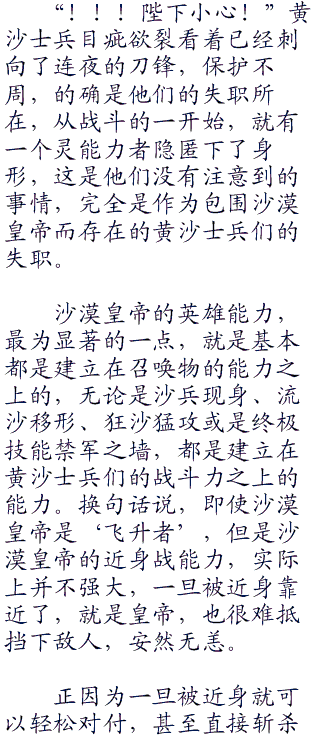 “！！！陛下小心！”黄
沙士兵目疵欲裂看着已经刺
向了连夜的刀锋，保护不
周，的确是他们的失职所
在，从战斗的一开始，就有
一个灵能力者隐匿下了身
形，这是他们没有注意到的
事情，完全是作为包围沙漠
皇帝而存在的黄沙士兵们的
失职。
沙漠皇帝的英雄能力，
最为显著的一点，就是基本
都是建立在召唤物的能力之
上的，无论是沙兵现身、流
沙移形、狂沙猛攻或是终极
技能禁军之墙，都是建立在
黄沙士兵们的战斗力之上的
能力。换句话说，即使沙漠
皇帝是‘飞升者’，但是沙
漠皇帝的近身战能力，实际
上并不强大，一旦被近身靠
近了，就是皇帝，也很难抵
挡下敌人，安然无恙。
正因为一旦被近身就可
以轻松对付，甚至直接斩杀